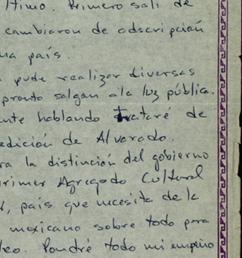 ltimo. Primero salí de
cambiaron de adscripción
na país.
pude realizar diversas
pronto salgan a la luz pública.
nte hablando trataré de
edición de Alvarado.
ra la distinción del gobierno
rimer Agregado Cultural
, país que necesita de la
mexicano sobre todo para
leo. Pondré todo mi empeño